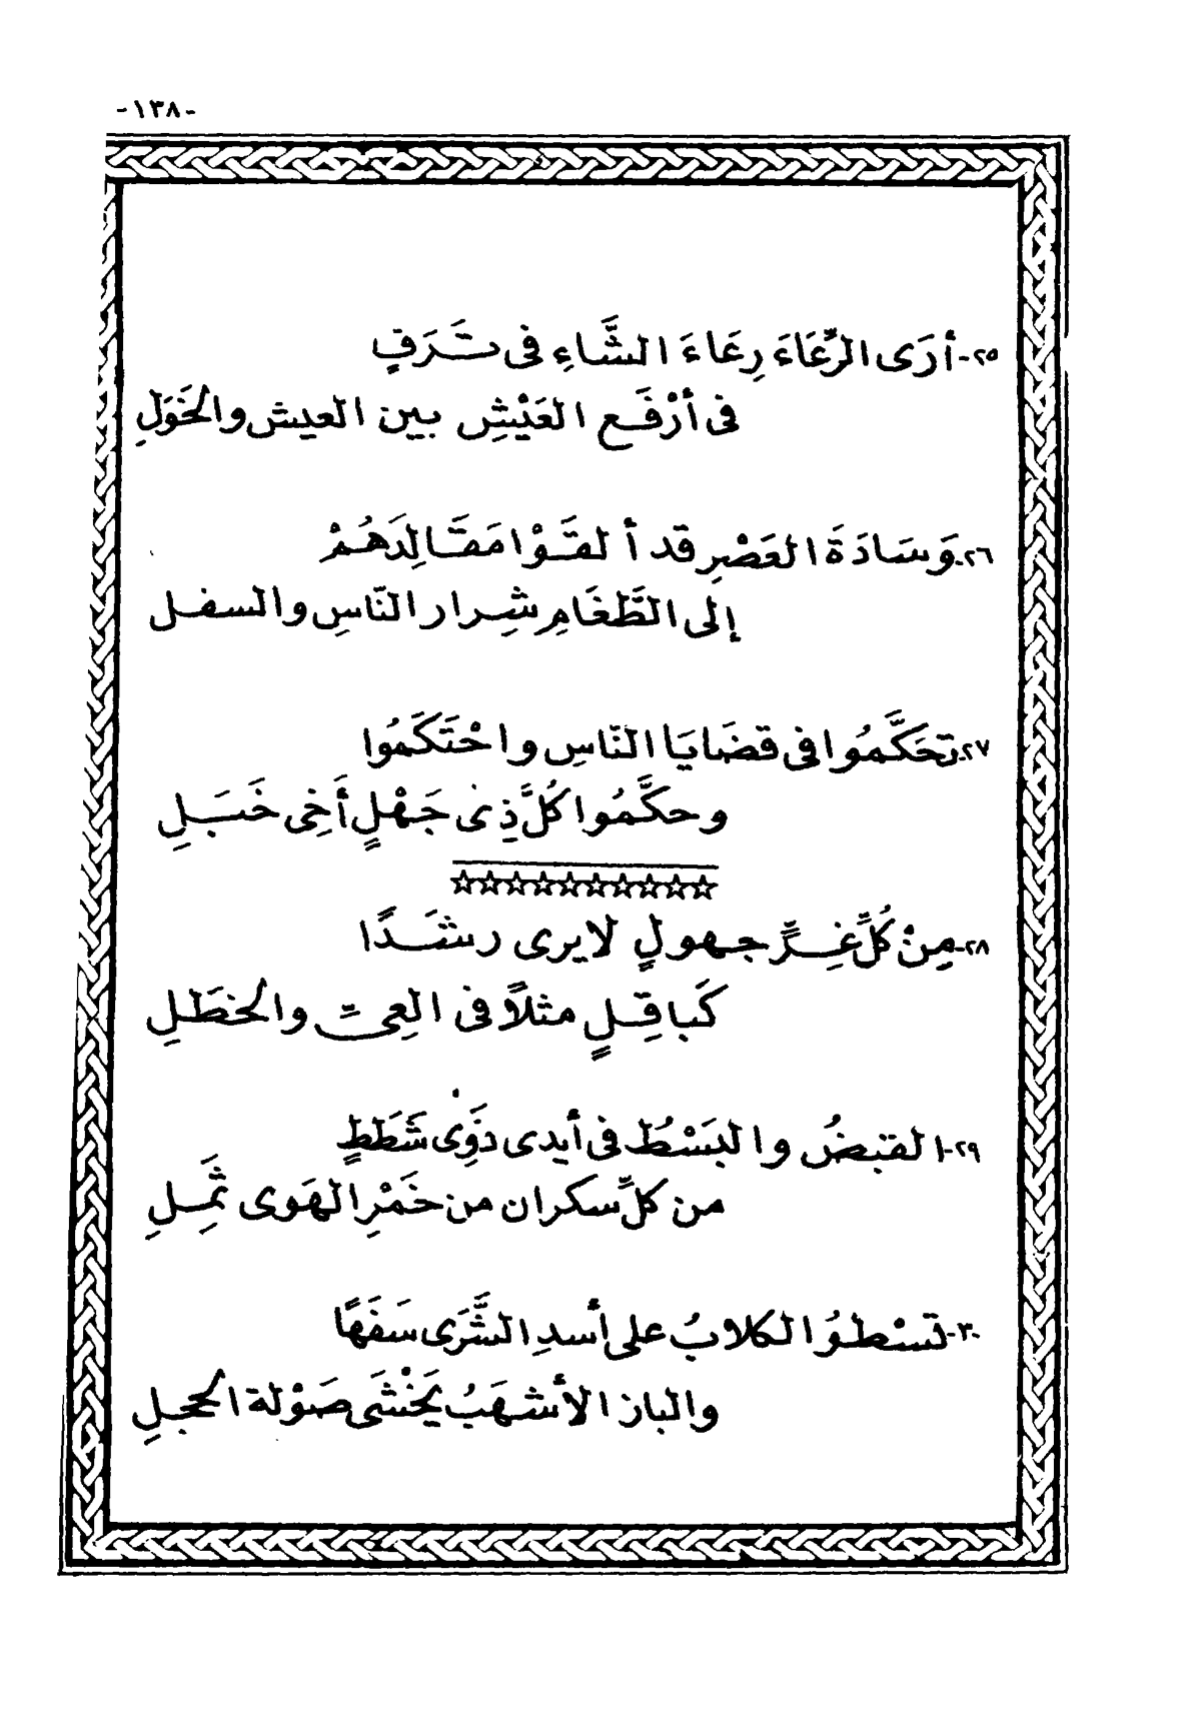 -١٣٨-
٢٥-أرَى الرِّعَاءَ رِعَاءَ الشَّاءِ فى تَرَفٍ
فى أرْفَع العَيْشِ بين العيش والخَوَلِ
٢٦-وَسَادَةَ العَصْرِ قد ألقَوْا مَقَالِدَهُمْ
إلى الطَّغَامِ شِرار النّاسِ والسفل
٢٧-تحَكَّمُوا فى قضَايَا النّاسِ واحْتَكَمُوا
وحكَّمُوا كُلَّ ذِى جَهْلٍ أَخِى خَبَلِ
☆☆☆☆☆☆☆☆☆☆
٢٨-مِنْ كُلِّ غِرٍّ جهولٍ لايرى رشَدًا
كَباقِلٍ مثلاً فى العِىّ والخطَلِ
٢٩-القبضُ والبَسْطُ فى أيدى ذَوِى شَطَطٍ
من كلِّ سكران من خَمْرِ الهَوى ثَمِلِ
٣٠-تَسْطوُ الكلابُ على أسدِ الشَّرَى سَفَهًا
والباز الأشهَبُ يَخْشَى صَوْلة الحجلِ